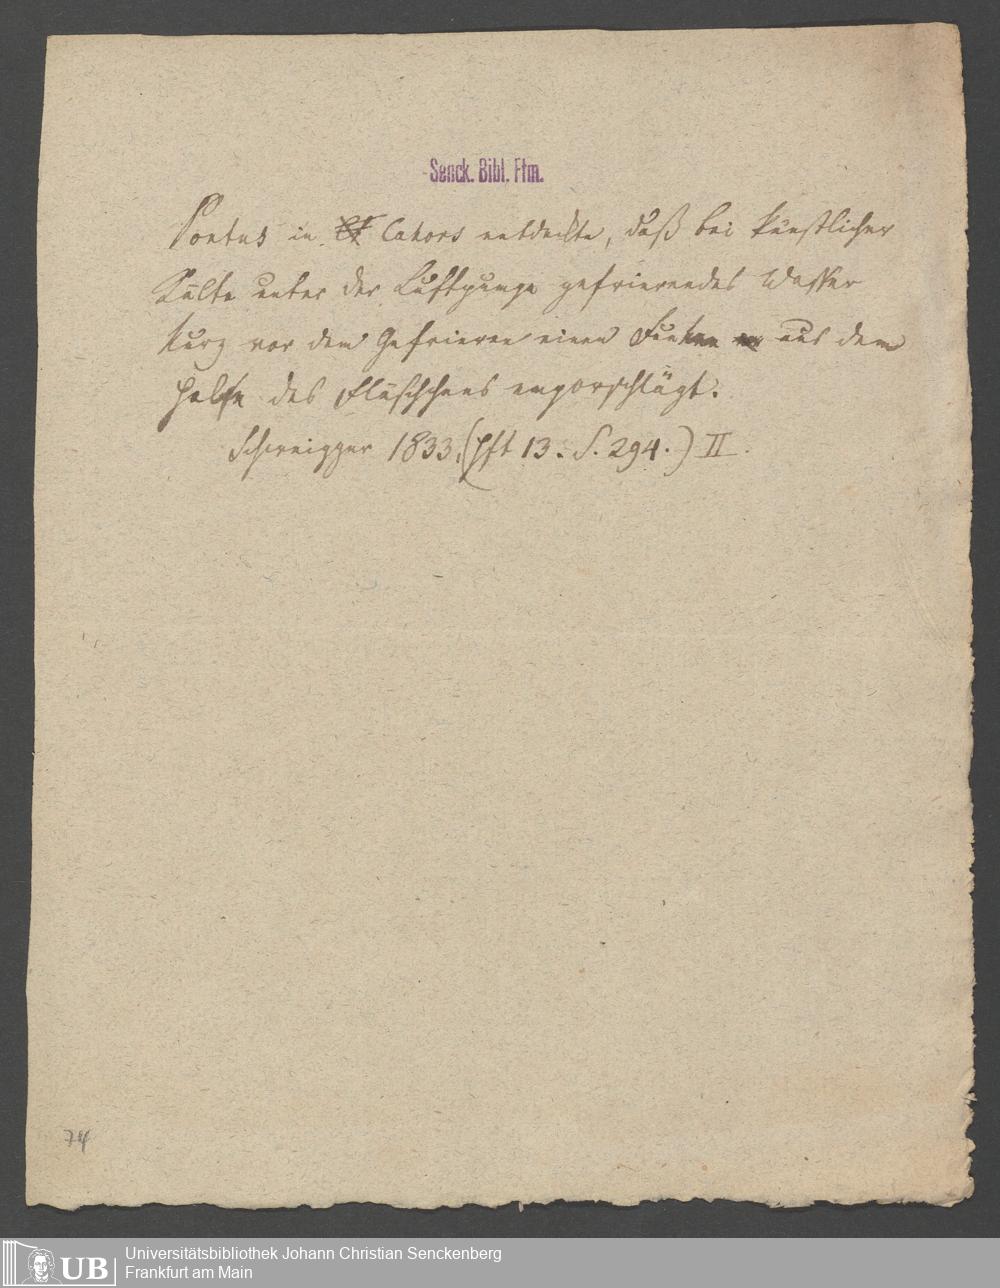 Senck. Bibl. Ffm.
Pontus in Cahors entdeckte, daß bei künstlicher
Kälte unter der Luftpumpe gefrierendes Wasser
kurz vor dem Gefrieren einen Funken aus dem
Halse des Fläschchens emporschlägt.
Schweigger 1833. (Hft 13. S. 294.) II.
74
UB
Universitätsbibliothek Johann Christian Senckenberg
Frankfurt am Main